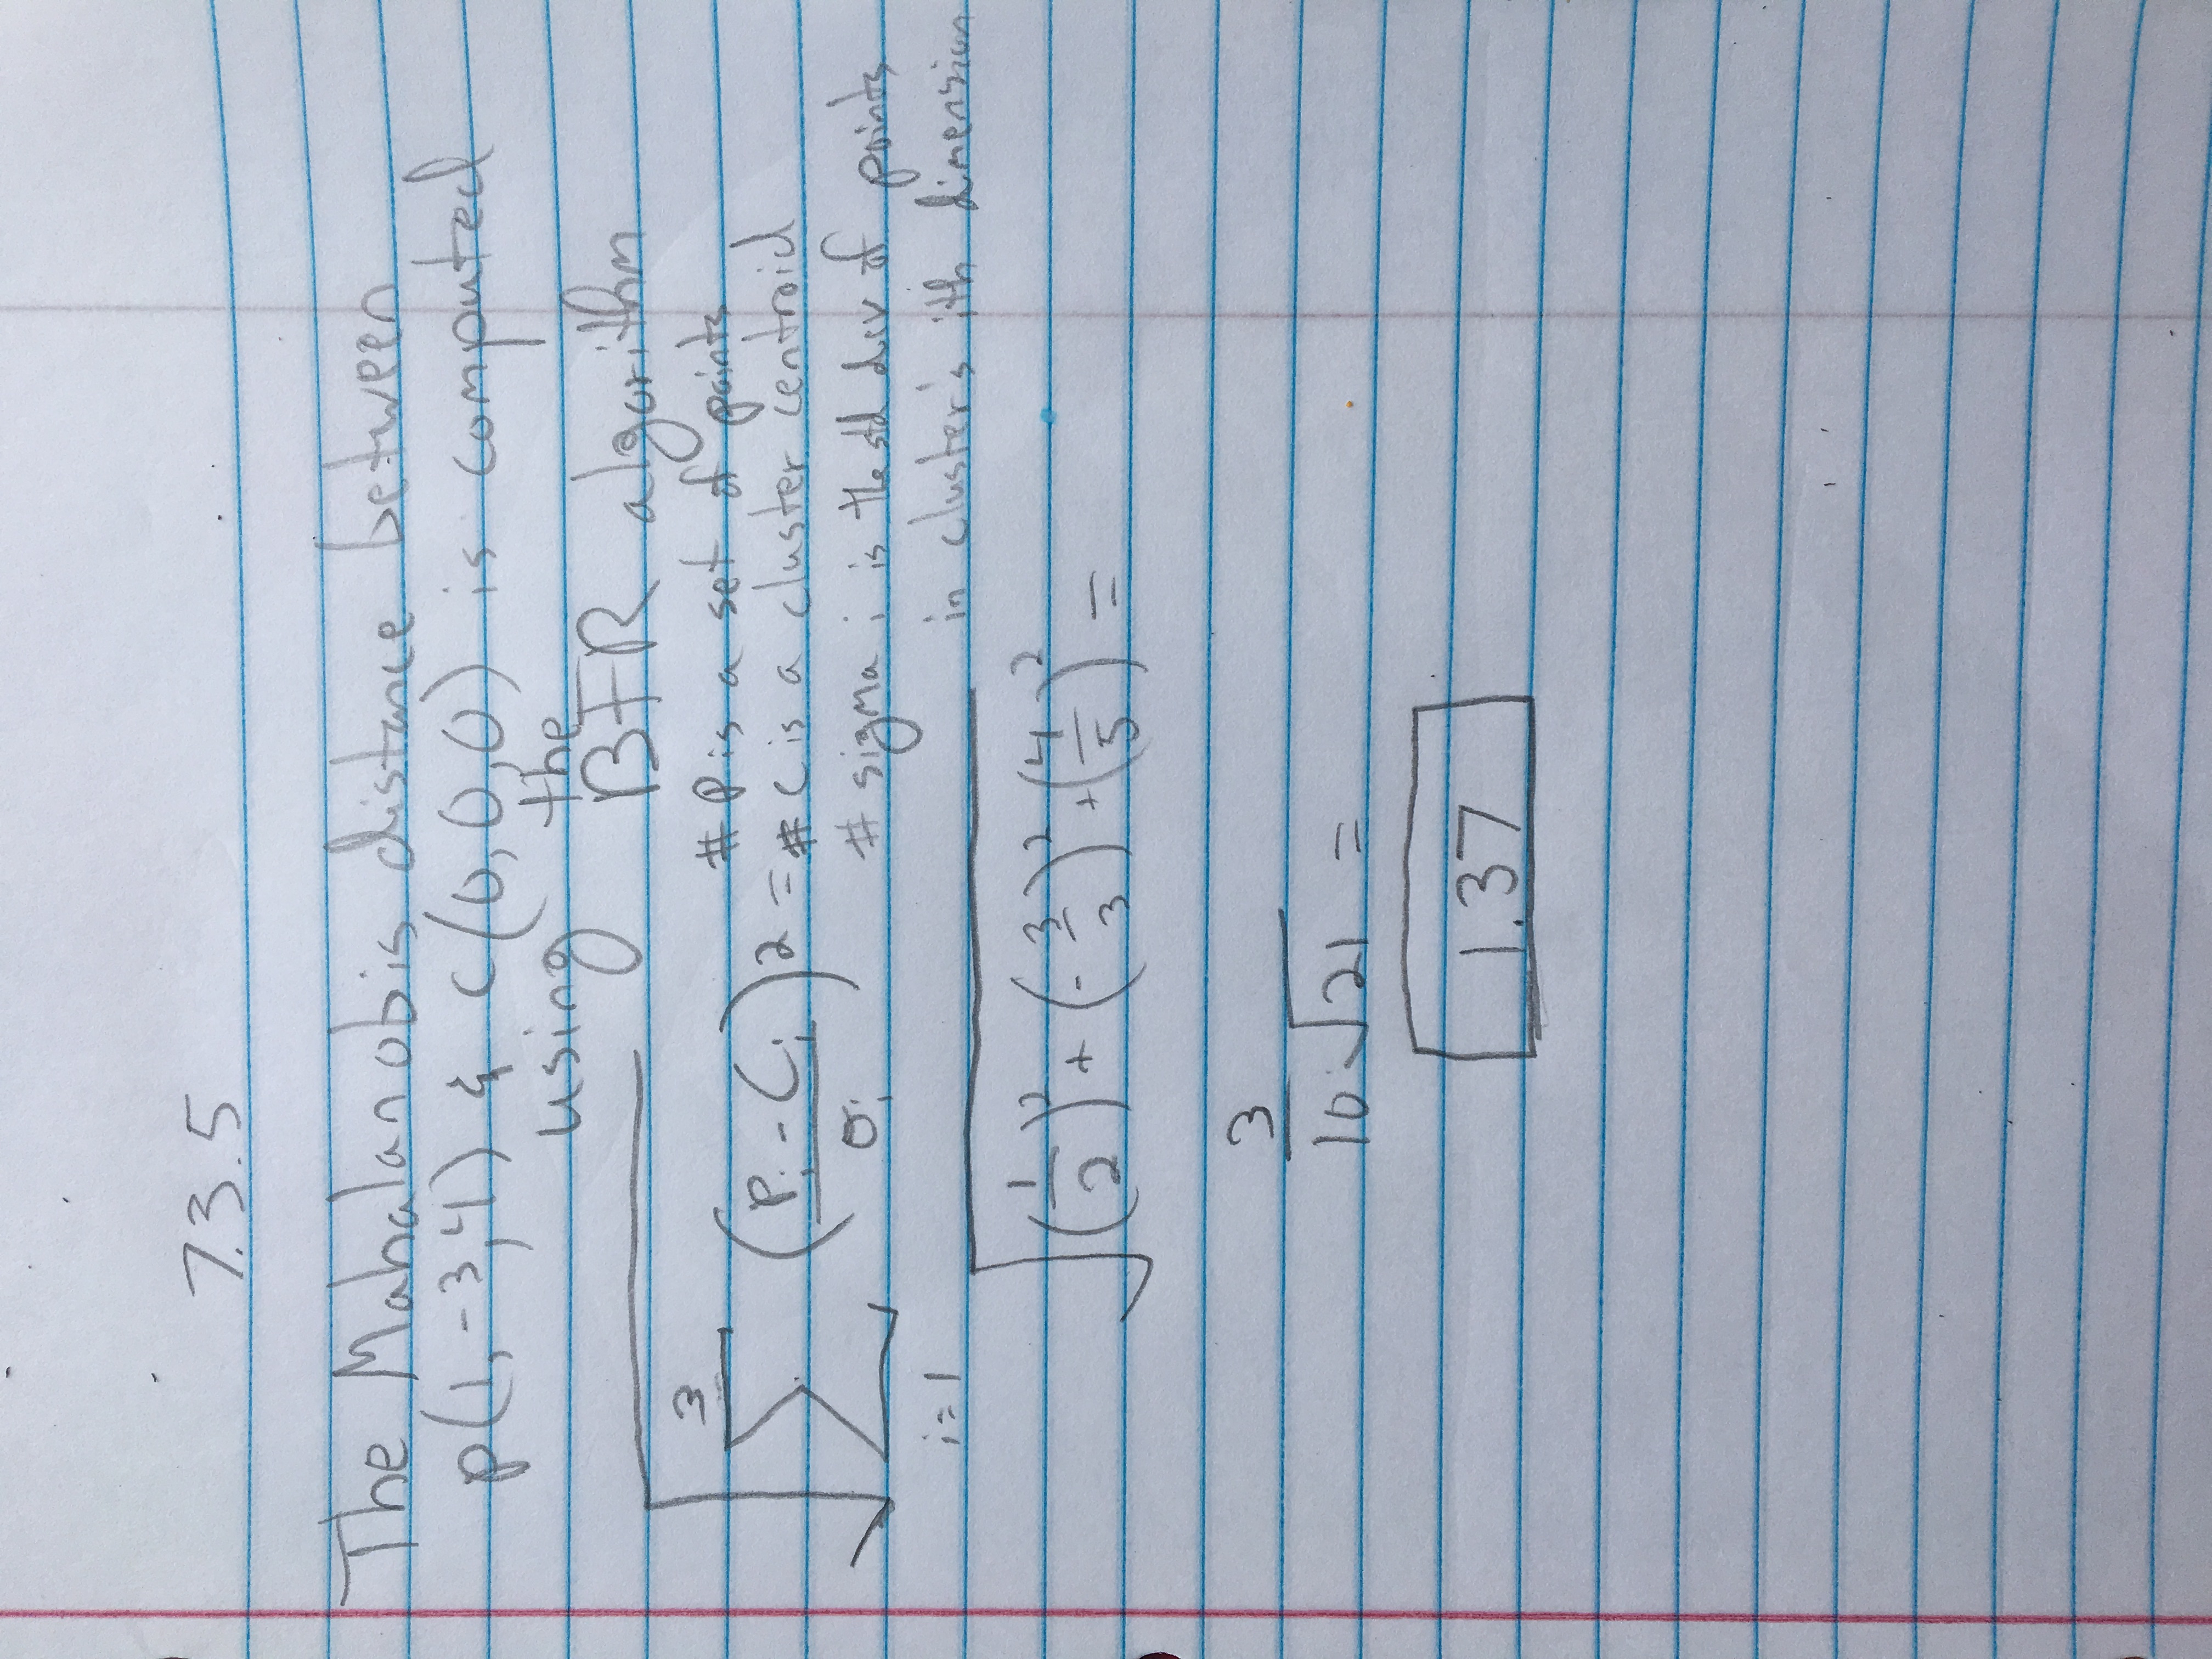 7.3.5
The Mahalanobis distance between
p(1, -3, 4) & c(0, 0, 0) is computed
using the
BFR algorithm
√ 3 ∑ i=1 (pi - Ci / σi)2 =
# P is a set of points
# C is a cluster centroid
# sigma i is the std dev of points
in cluster's ith dimension
√ (1/2)² + (- 3/3)² + (4/5)² =
3 / 10 √21 =
1.37